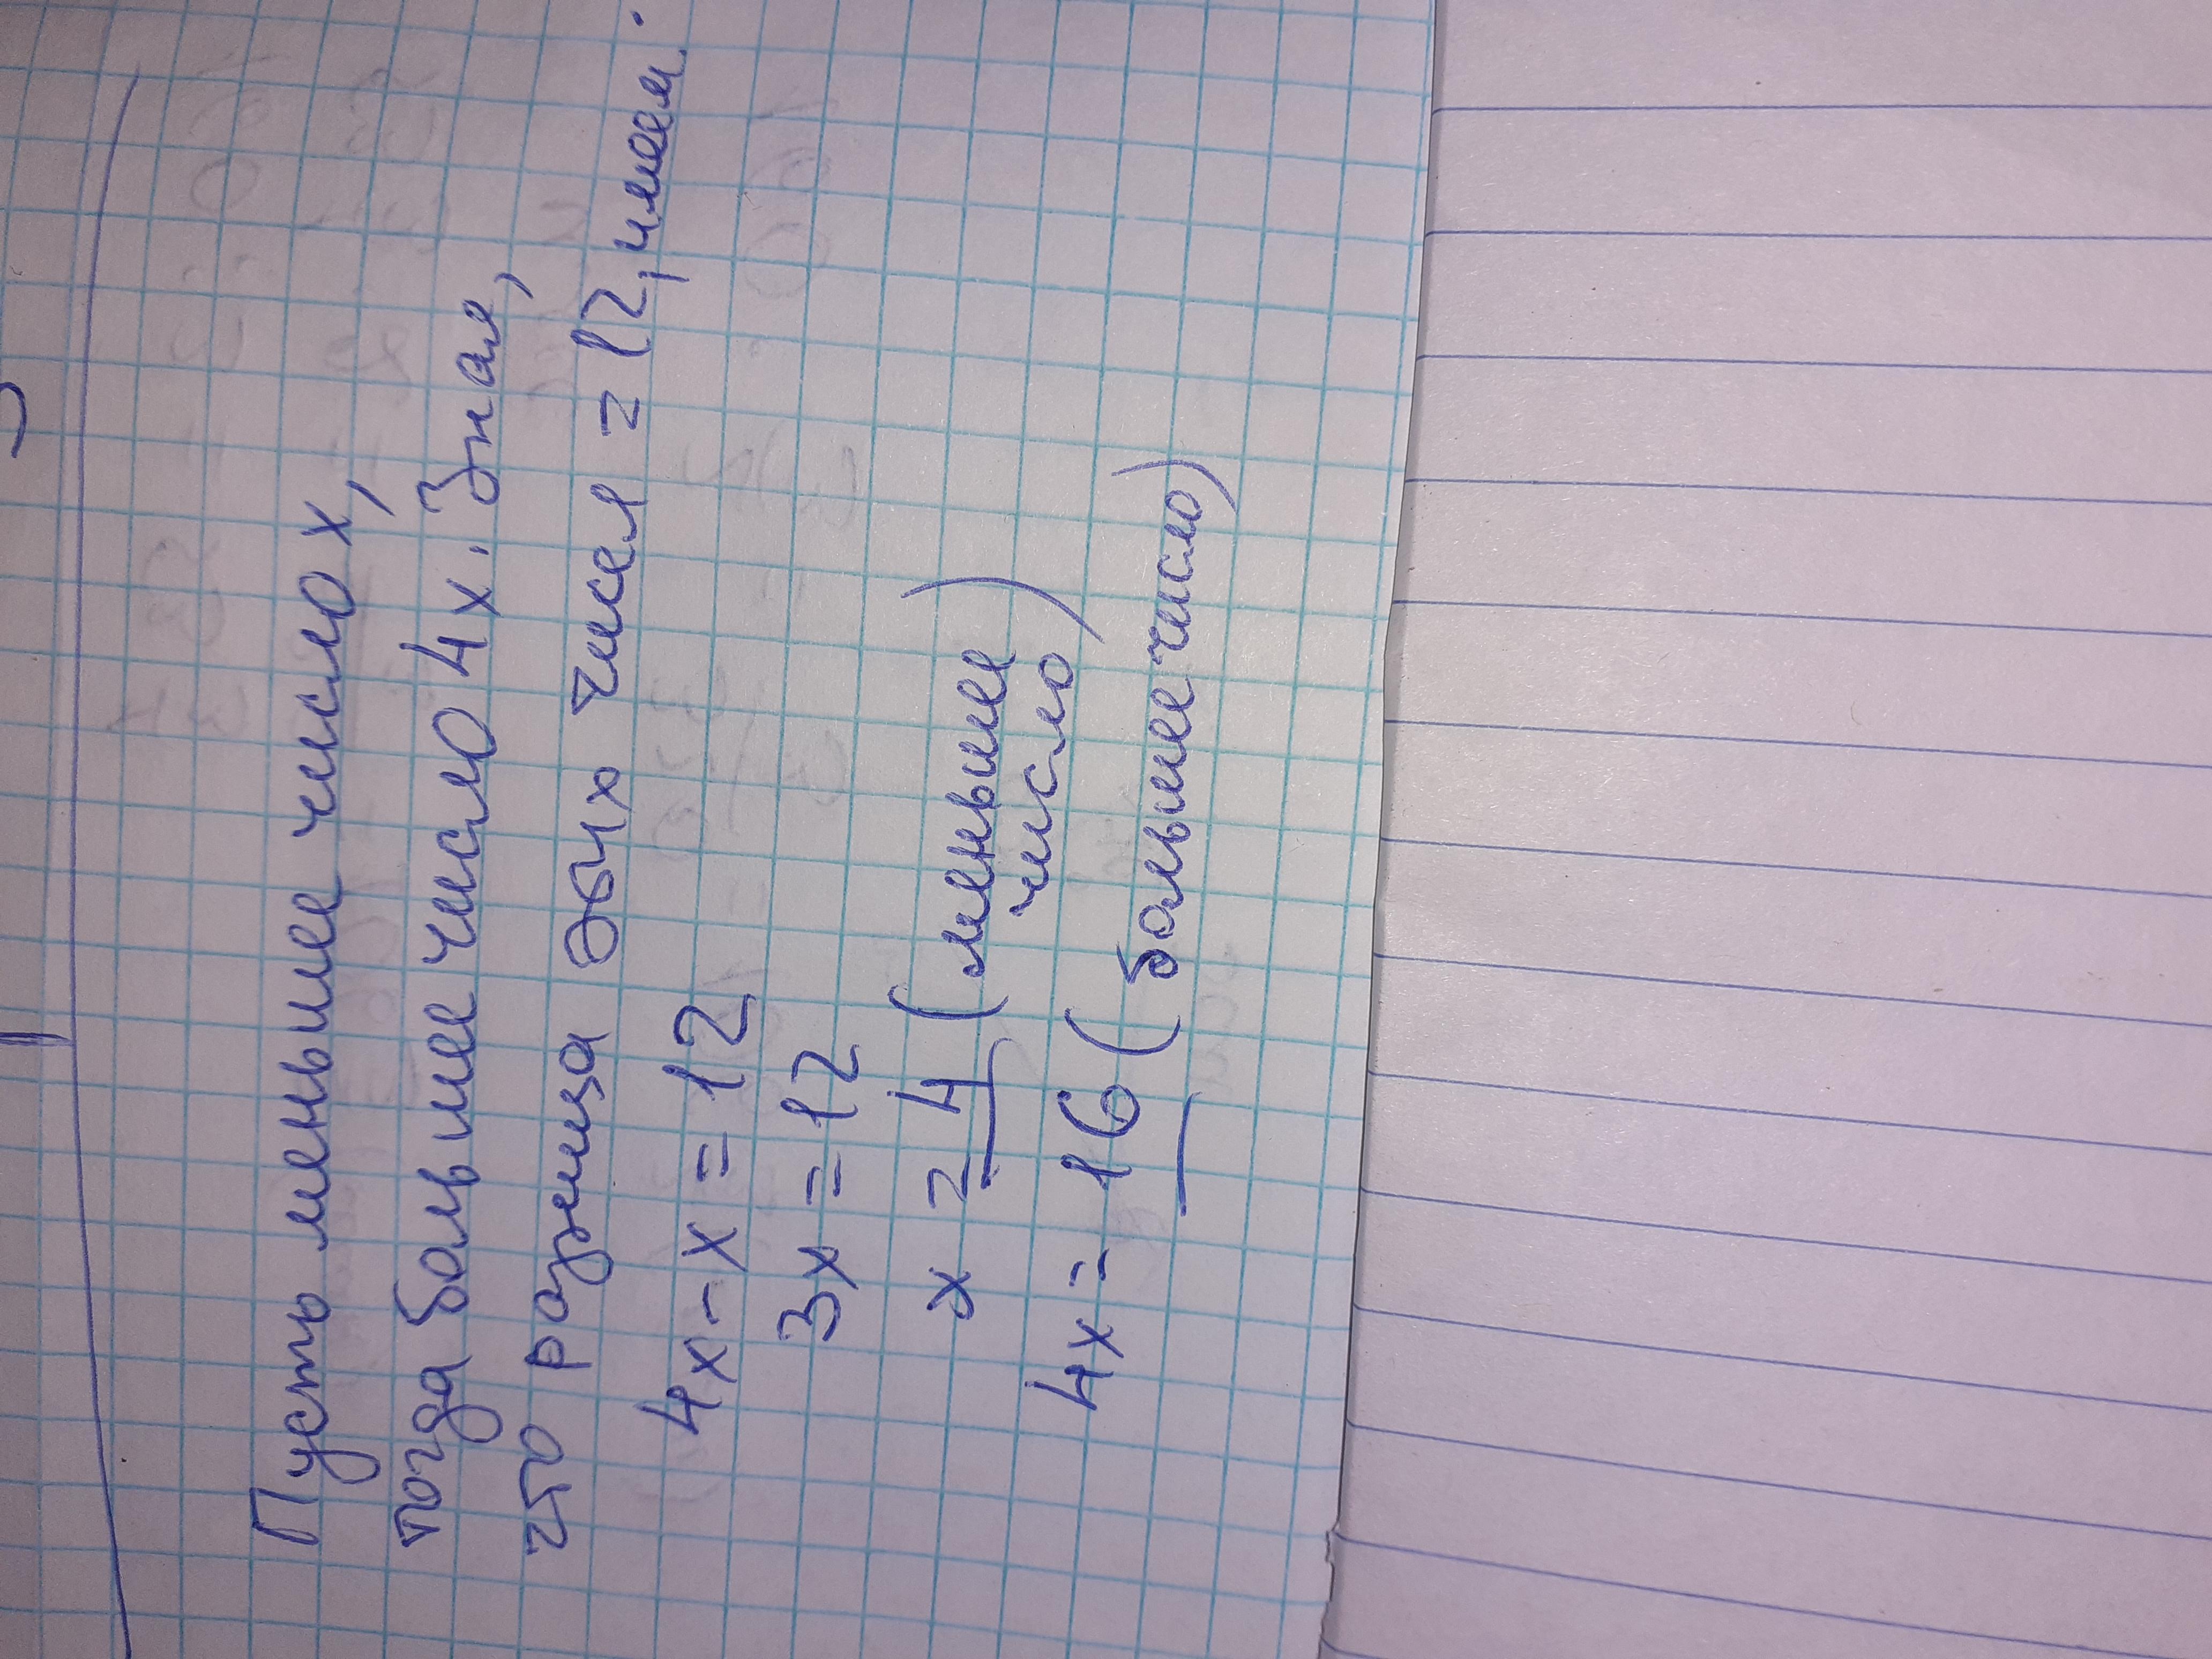 Пусть меньшее число х,
тогда большее число 4х. Зная,
что разница этих чисел = 12, имеем:
4х - х = 12
3х = 12
х = 4 (меньшее
число)
4х = 16 (большее число)